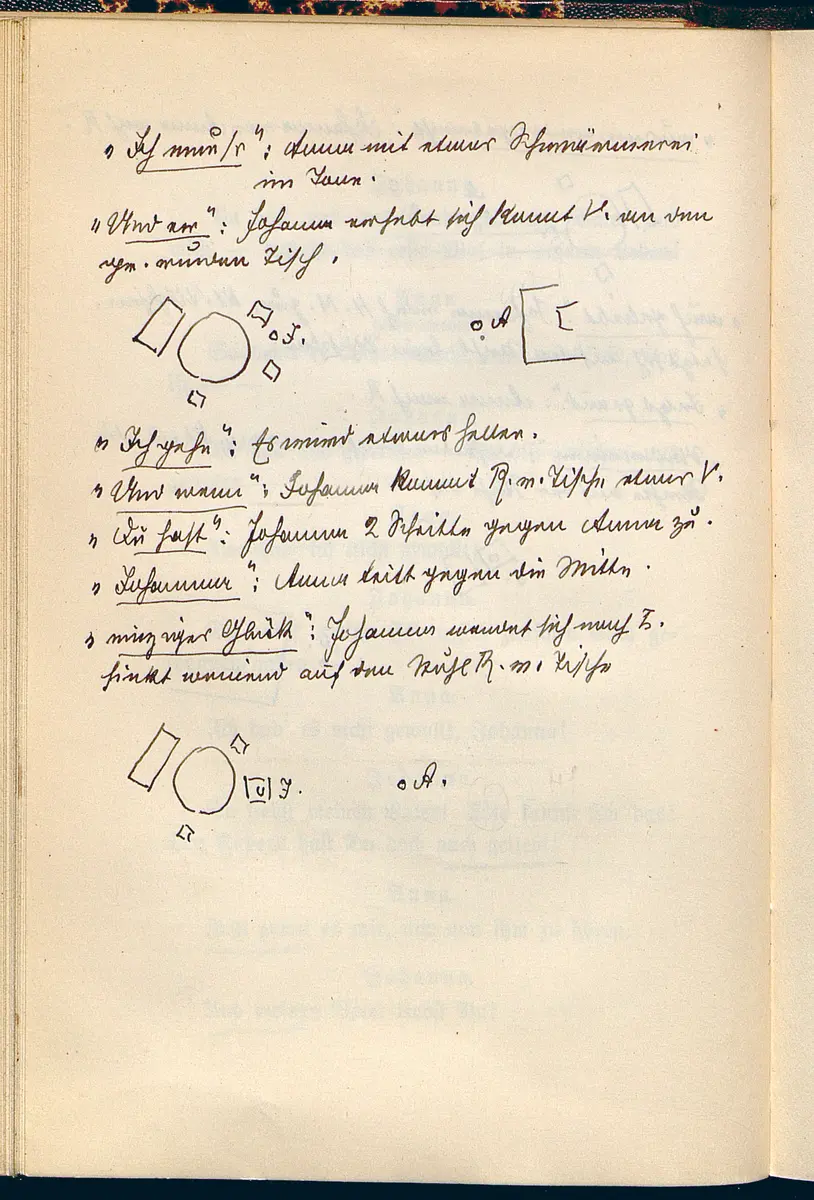 „Ich muss": Anna mit etwas Schwärmerei
im Tone.
„Und er": Johanna erhebt sich kommt V. an den
gr. runden Tisch.
J.
A
„Ich gehe": Es wird etwas heller.
„Und wenn": Johanna kommt R. v. Tische etwas V.
„Du hast": Johanna 2 Schritte gegen Anna zu.
„Johanna": Anna tritt gegen die Mitte.
„einziges Glück": Johanna wendet sich nach L.
sinkt weinend auf den Stuhl R. v. Tische
J.
A.